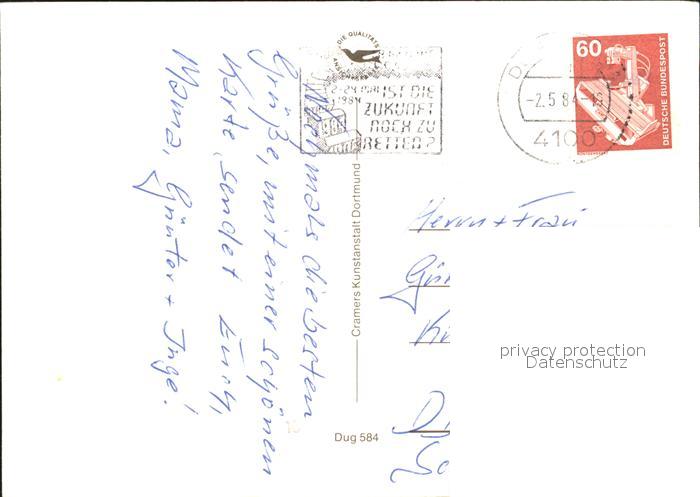 Nochmals die besten
Grüße, mit einer schönen
Karte, sendet Euch,
Mama, Günter + Inge!
DIE QUALITÄTS
2-24 MAI
1984
IST DIE
ZUKUNFT
NOCH ZU
RETTEN?
-2.5.84-
4100
60
DEUTSCHE BUNDESPOST
Cramers Kunstanstalt Dortmund
Dug 584
Herrn + Frau
privacy protection
Datenschutz